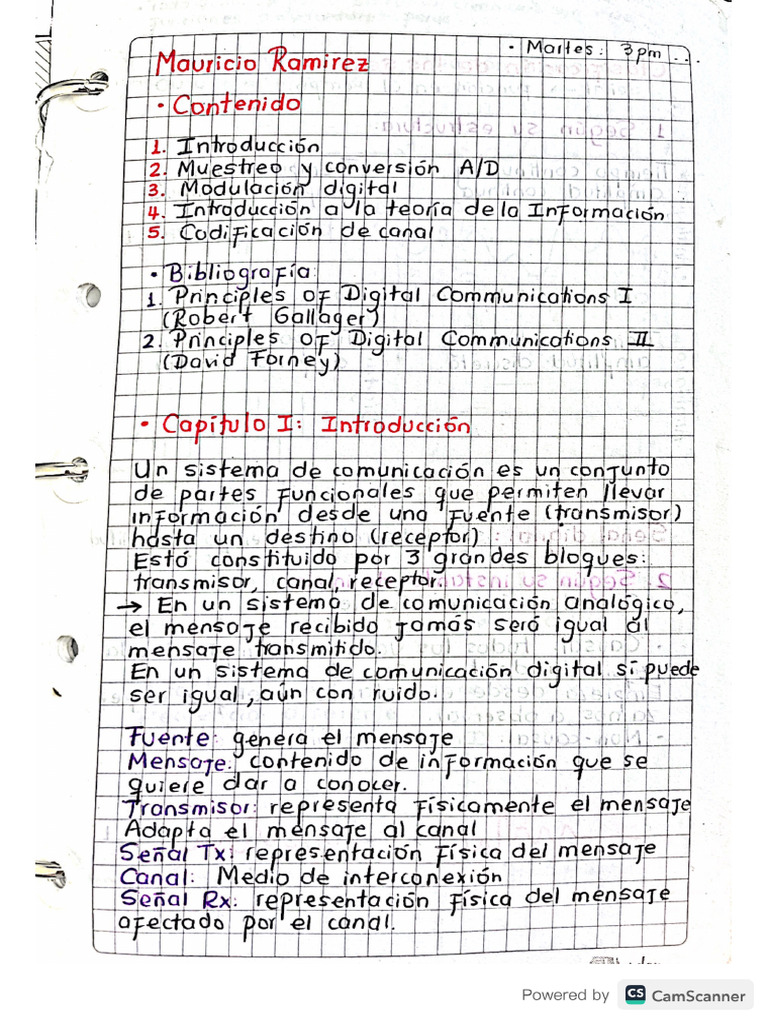 · Martes: 3pm ...
Mauricio Ramirez
· Contenido
1. Introducción
2. Muestreo y conversión A/D
3. Modulación digital
4. Introducción a la teoría de la Información
5. Codificación de canal
· Bibliografía:
1. Principles of Digital Communications I
(Robert Gallager)
2. Principles of Digital Communications II
(David Forney)
· Capítulo I: Introducción
Un sistema de comunicación es un conjunto
de partes funcionales que permiten llevar
información desde una fuente (transmisor)
hasta un destino (receptor)
Está constituido por 3 grandes bloques:
transmisor, canal, receptor.
→ En un sistema de comunicación analógico,
el mensaje recibido jamás será igual al
mensaje transmitido.
En un sistema de comunicación digital sí puede
ser igual, aún con ruido.
Fuente: genera el mensaje
Mensaje: contenido de información que se
quiere dar a conocer.
Transmisor: representa físicamente el mensaje
Adapta el mensaje al canal
Señal Tx: representación física del mensaje
Canal: Medio de interconexión
Señal Rx: representación física del mensaje
afectado por el canal.
Powered by CS CamScanner